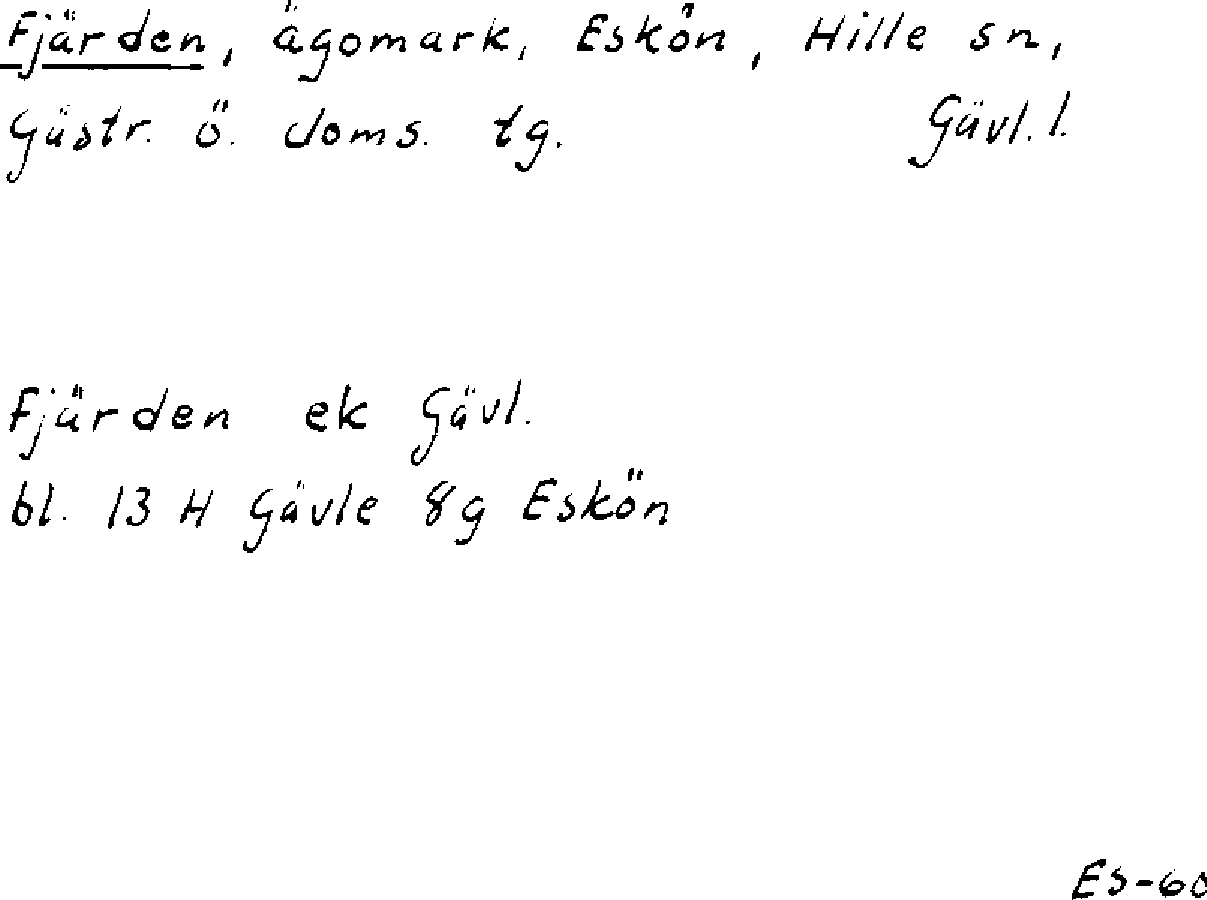 Fjärden, ägomark, Eskön, Hille sn,
Gästr. ö. doms. tg. Gävl. l.
Fjärden ek Gävl.
bl. 13 H Gävle 8g Eskön
ES-60